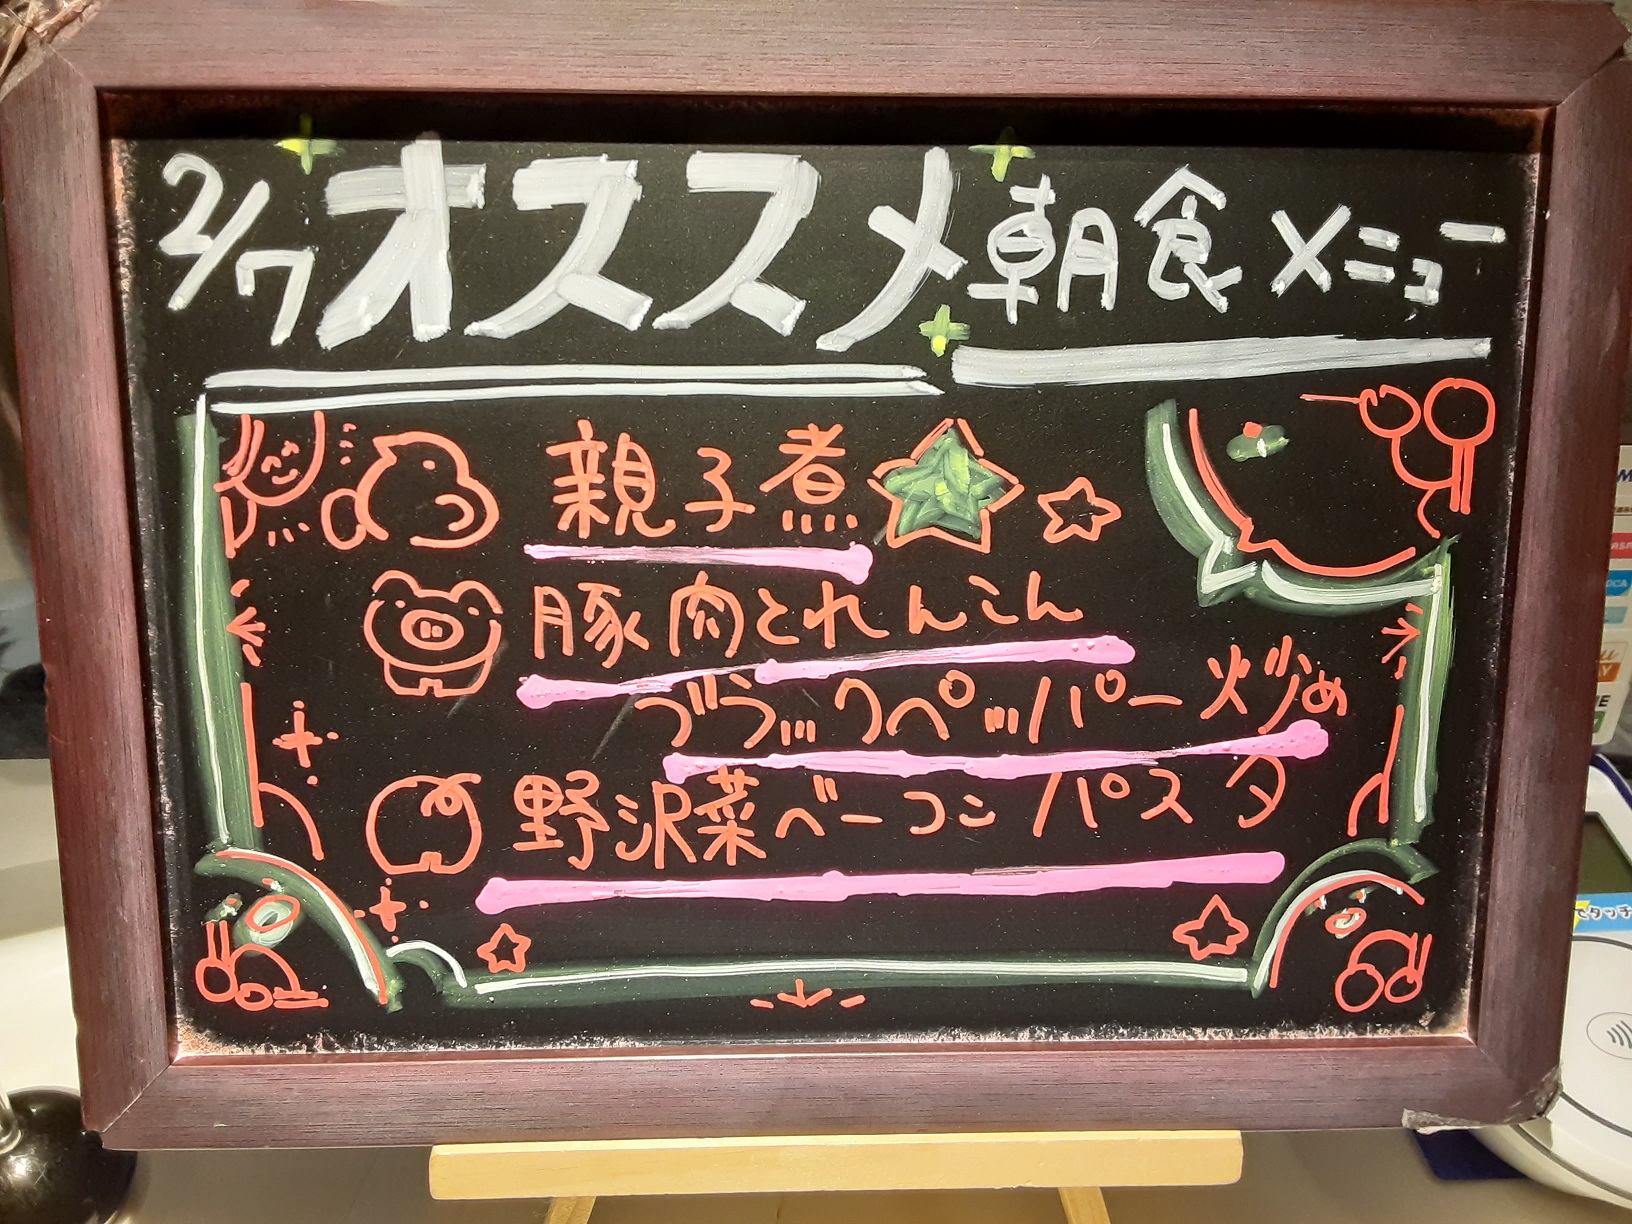 2/7 オススメ 朝食メニュー
親子煮
豚肉とれんこん
ブラックペッパー炒め
野沢菜ベーコンパスタ
タッチ